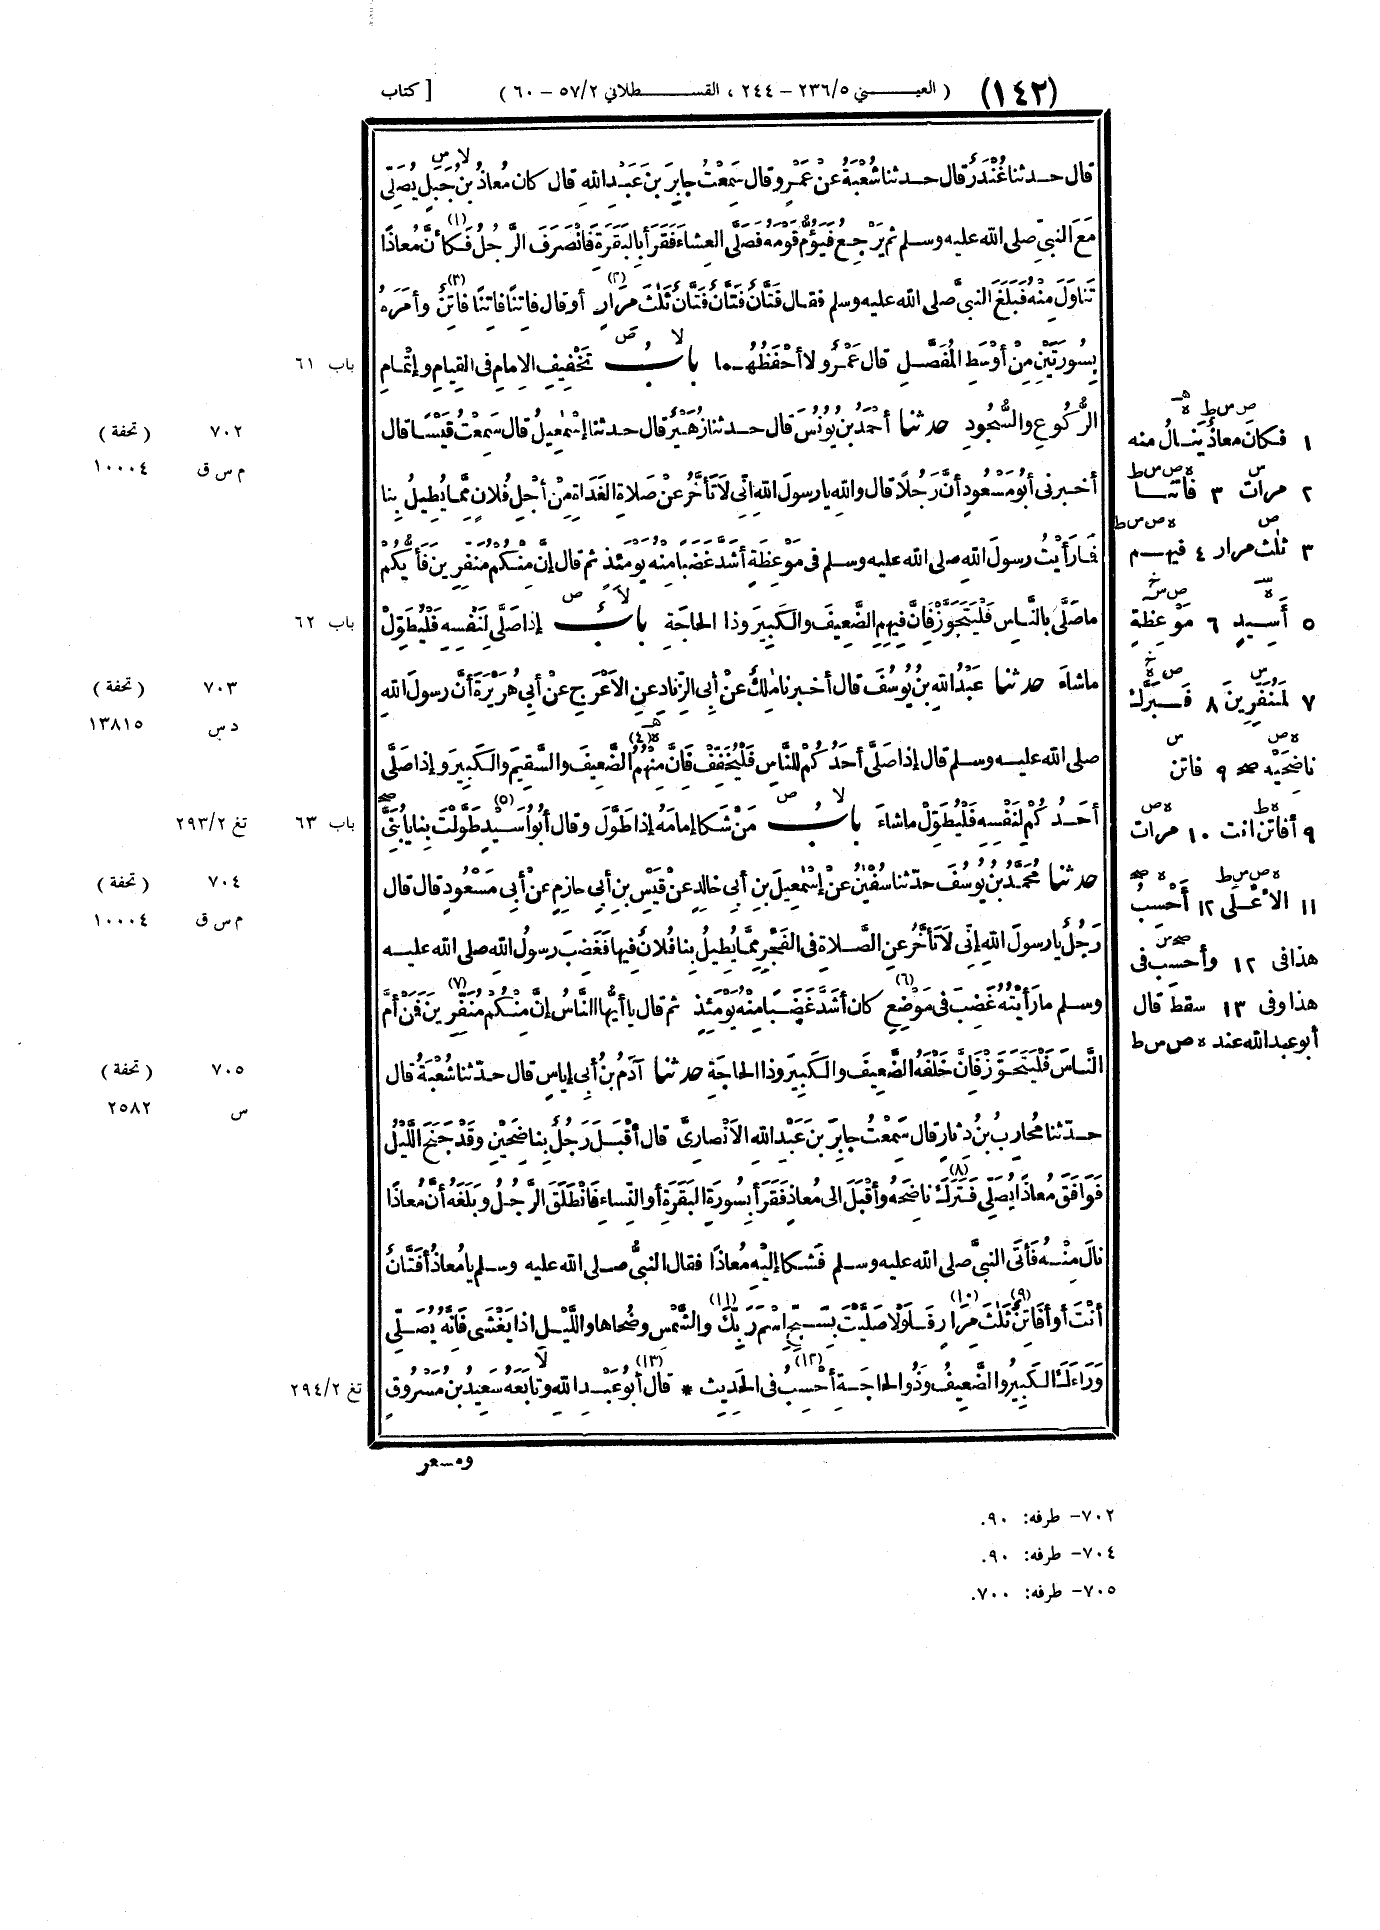 (١٤٢) ( العيـــني ٢٣٦/٥ – ٢٤٤ ، القســـطلاني ٥٧/٢ – ٦٠ ) [ كتاب
قال حدثنا غُنْدَرٌ قال حدثنا شُعْبَةُ عنْ عَمْرٍو قال سَمِعْتُ جابِرَ بنَ عَبْدِ اللهِ قال كان مُعاذُ بنُ جَبَلٍ يُصَلِّي
مَعَ النبيِّ صلى الله عليه وسلم ثم يَرْجِعُ فَيَؤُمُّ قَوْمَهُ فَصَلَّى العِشاءَ فَقَرَأَ بِالبَقَرَةِ فَانْصَرَفَ الرَّجُلُ فَكَأَنَّ (١) مُعاذًا
تَناوَلَ مِنْهُ فَبَلَغَ النبيَّ صلى الله عليه وسلم فقال فَتَّانٌ فَتَّانٌ فَتَّانٌ ثَلٰثَ مِرَارٍ (٢) أو قال فاتِنًا فاتِنًا فاتِنٌ (٣) وأمَرَهُ
بِسُورَتَيْنِ مِنْ أوْسَطِ المُفَصَّلِ قال عَمْرٌو لا أحْفَظُهُما بابُ تَخْفِيفِ الإمامِ في القِيامِ وإتْمامِ
الرُّكُوعِ والسُّجُودِ حدثنا أحْمَدُ بنُ يُونُسَ قال حدثنا زُهَيْرٌ قال حدثنا إسْمٰعِيلُ قال سَمِعْتُ قَيْسًا قال
أخبرني أبُو مَسْعُودٍ أنَّ رَجُلًا قال واللهِ يا رسولَ اللهِ إنِّي لَأَتَأَخَّرُ عنْ صَلاةِ الغَدَاةِ مِنْ أجْلِ فُلانٍ مِمَّا يُطِيلُ بِنا
فَما رَأيْتُ رسولَ اللهِ صلى الله عليه وسلم في مَوْعِظَةٍ أشَدَّ غَضَبًا مِنْهُ يَوْمَئِذٍ ثم قال إنَّ مِنْكُمْ مُنَفِّرِينَ فَأَيُّكُمْ
ما صَلَّى بالنَّاسِ فَلْيَتَجَوَّزْ فَإنَّ فِيهِمِ الضَّعِيفَ والكَبِيرَ وذا الحاجَةِ بابٌ إذا صَلَّى لِنَفْسِهِ فَلْيُطَوِّلْ
ما شاءَ حدثنا عَبْدُ اللهِ بنُ يُوسُفَ قال أخبرنا مٰلِكٌ عنْ أبي الزِّنادِ عنِ الأَعْرَجِ عنْ أبي هُرَيْرَةَ أنَّ رسولَ اللهِ
صلى الله عليه وسلم قال إذا صَلَّى أحَدُكُمْ لِلنَّاسِ فَلْيُخَفِّفْ فَإنَّ مِنْهُمُ (٤) الضَّعِيفَ والسَّقِيمَ والكَبِيرَ وإذا صَلَّى
أحَدُكُمْ لِنَفْسِهِ فَلْيُطَوِّلْ ما شاءَ بابُ مَنْ شَكا إمامَهُ إذا طَوَّلَ وقال أبُو أُسَيْدٍ (٥) طَوَّلْتَ بِنا يا بُنَيَّ
حدثنا مُحَمَّدُ بنُ يُوسُفَ حدّثنا سُفْيٰنُ عنْ إسْمٰعِيلَ بنِ أبي خالِدٍ عنْ قَيْسِ بنِ أبي حازِمٍ عنْ أبي مَسْعُودٍ قال قال
رَجُلٌ يا رسولَ اللهِ إنِّي لَأَتَأَخَّرُ عنِ الصَّلاةِ في الفَجْرِ مِمَّا يُطِيلُ بِنا فُلانٌ فِيها فَغَضِبَ رسولُ اللهِ صلى الله عليه
وسلم ما رَأيْتُهُ غَضِبَ في مَوْضِعٍ (٦) كان أشَدَّ غَضَبًا مِنْهُ يَوْمَئِذٍ ثم قال يا أيُّها النَّاسُ إنَّ مِنْكُمْ مُنَفِّرِينَ (٧) فَمَنْ أمَّ
النَّاسَ فَلْيَتَجَوَّزْ فَإنَّ خَلْفَهُ الضَّعِيفَ والكَبِيرَ وذا الحاجَةِ حدثنا آدَمُ بنُ أبي إياسٍ قال حدّثنا شُعْبَةُ قال
حدّثنا مُحارِبُ بنُ دِثارٍ قال سَمِعْتُ جابِرَ بنَ عَبْدِ اللهِ الأَنْصارِيَّ قال أقْبَلَ رَجُلٌ بِناضِحَيْنِ وقَدْ جَنَحَ اللَّيْلُ
فَوَافَقَ مُعاذًا يُصَلِّي فَتَرَكَ (٨) ناضِحَهُ وأقْبَلَ إلى مُعاذٍ فَقَرَأَ بِسُورَةِ البَقَرَةِ أوِ النِّساءِ فَانْطَلَقَ الرَّجُلُ وبَلَغَهُ أنَّ مُعاذًا
نالَ مِنْهُ فَأتَى النبيَّ صلى الله عليه وسلم فَشَكا إلَيْهِ مُعاذًا فقال النبيُّ صلى الله عليه وسلم يا مُعاذُ أفَتَّانٌ
أنْتَ أوْ أفَاتِنٌ (٩) ثَلٰثَ مِرَارٍ (١٠) فَلَوْلا صَلَّيْتَ بِسَبِّحِ اسْمَ رَبِّكَ (١١) والشَّمْسِ وضُحاها واللَّيْلِ إذا يَغْشَى فَإنَّهُ يُصَلِّي
وَرَاءَكَ الكَبِيرُ والضَّعِيفُ وذُو الحاجَةِ أحْسِبُ (١٢) في الحَدِيثِ * قال (١٣) أبُو عَبْدِ اللهِ وتابَعَهُ سَعِيدُ بنُ مَسْرُوقٍ
ومسعر
١ فكانَ معاذٌ يَنالُ منه
٢ مرات ٣ فاتنا
٣ ثلٰث مرار ٤ فيهم
٥ أَسِيدٍ ٦ مَوْعِظَةٍ
٧ لَمُنَفِّرِينَ ٨ فَبَرَّكَ
ناضِحَيْه ٩ فاتن
٩ أفاتن انت ١٠ مرات
١١ الأعْلَى ١٢ أَحْسِبُ
هذا في ١٢ وأحسب في
هذا وفي ١٣ سقط قال
أبو عبد الله عند ه ص س ط
باب ٦١
٧٠٢ ( تحفة )
م س ق ١٠٠٠٤
باب ٦٢
٧٠٣ ( تحفة )
د س ١٣٨١٥
باب ٦٣ تغ ٢٩٣/٢
٧٠٤ ( تحفة )
م س ق ١٠٠٠٤
٧٠٥ ( تحفة )
س ٢٥٨٢
تغ ٢٩٤/٢
٧٠٢– طرفه: ٩٠.
٧٠٤– طرفه: ٩٠.
٧٠٥– طرفه: ٧٠٠.